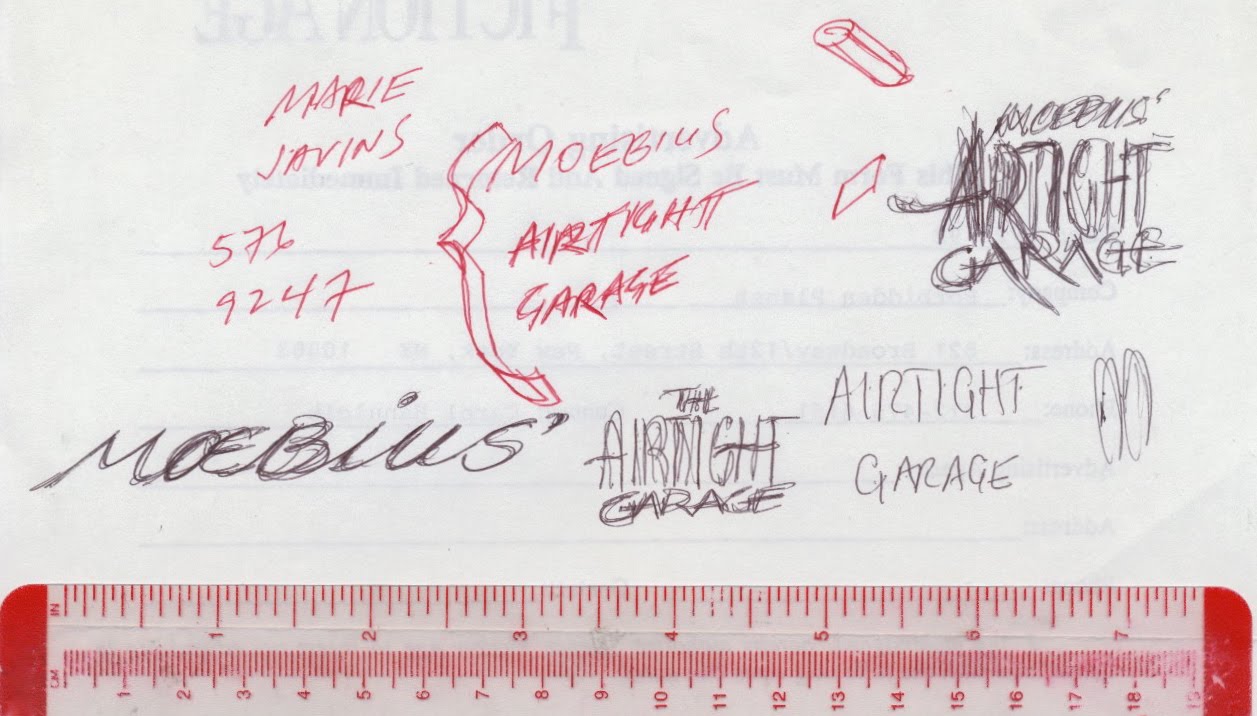 FICTION AGE
MARIE
JAVINS
576
9247
MOEBIUS
AIRTIGHT
GARAGE
MOEBIUS'
AIRTIGHT
GARAGE
Advertising Order
This Form Must Be Signed And Returned Immediately
Company: Forbidden Planet
Address: 821 Broadway/12th Street, New York, NY 10003
Phone:
MOEBIUS'
THE
AIRTIGHT
GARAGE
AIRTIGHT
GARAGE
Advertising
Address:
IN 1 2 3 4 5 6 7
CM 1 2 3 4 5 6 7 8 9 10 11 12 13 14 15 16 17 18 19